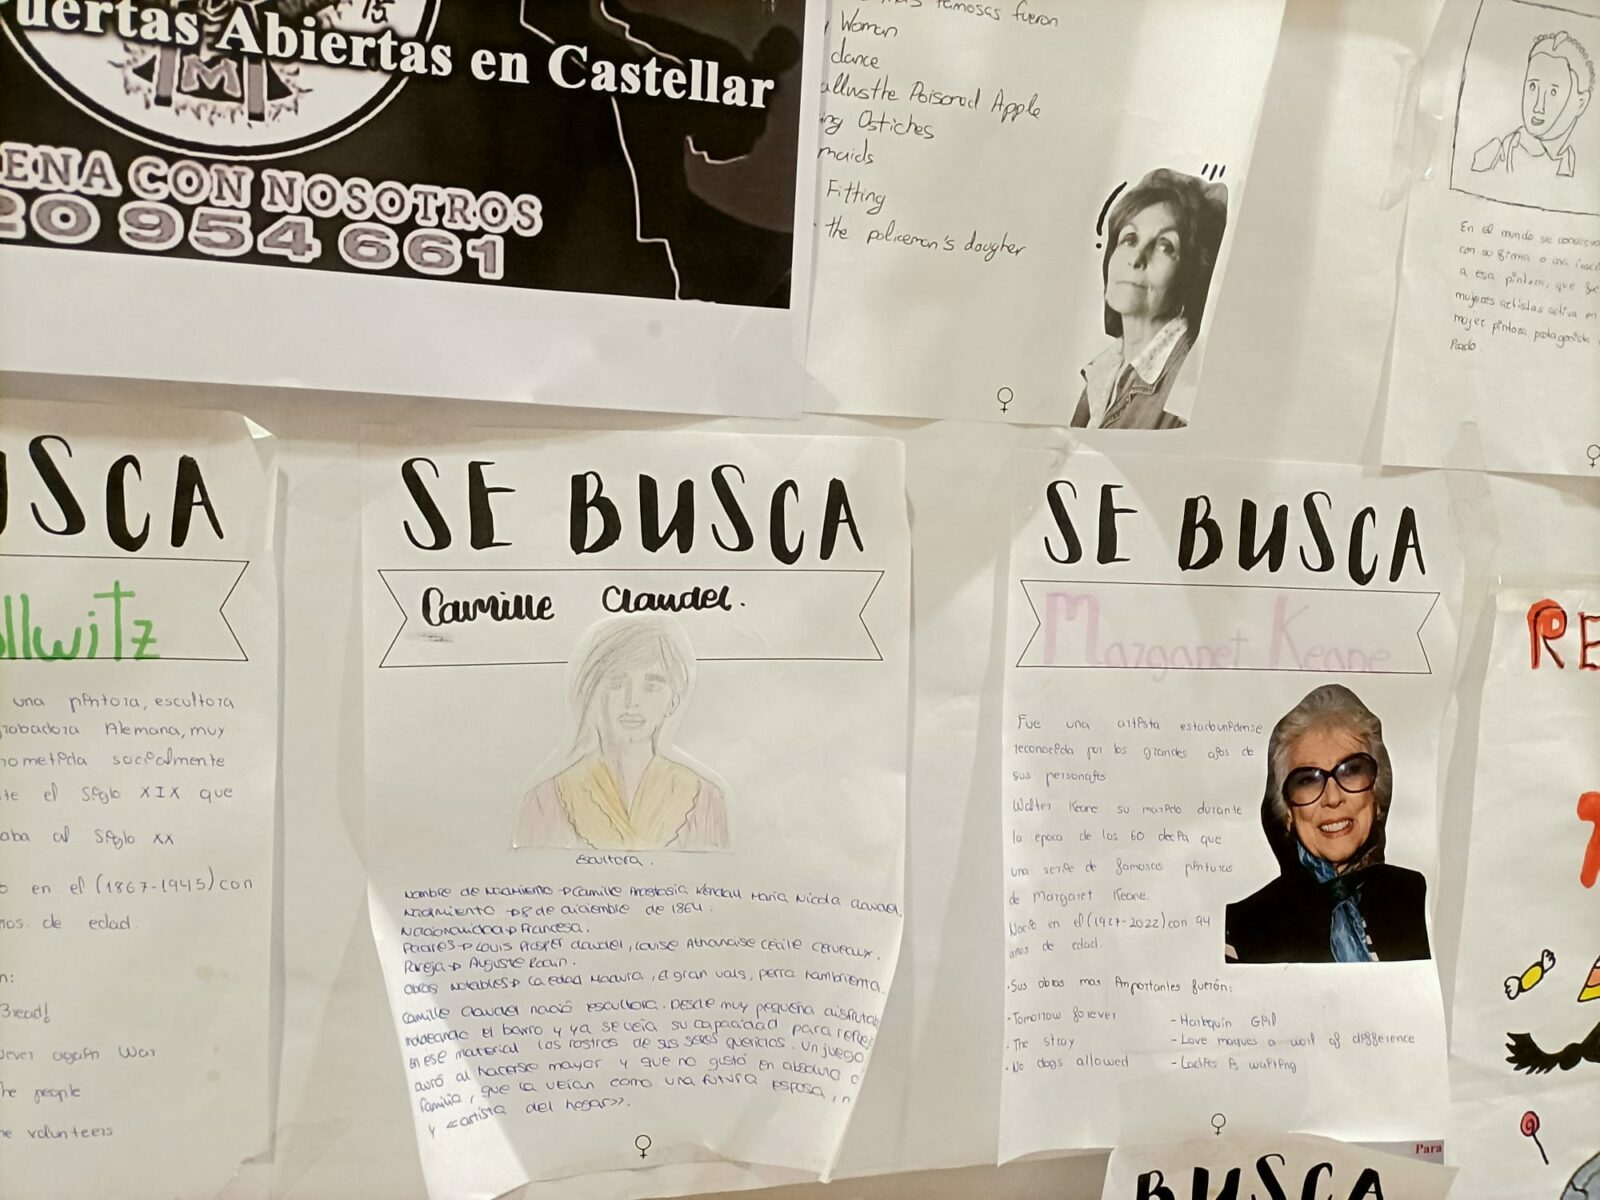 uertas Abiertas en Castellar
15
M
ENA CON NOSOTROS
20 954 661
famosas fueron
Woman
dance
the Poisored Apple
Ostiches
maids
Fitting
the policeman's dougher
En el mundo se conserva
con su firma o una
a esa pintora, que
mujeres artistas activa en
mujer pintora protagonista
Prado.
USCA
ollwitz
una pintora, escultora
robadora Alemana, muy
ometida socialmente
te el siglo XIX que
aba al siglo XX
en el (1867-1945) con
ños de edad.
n:
Bread!
Never again War
he people
he volunteers
SE BUSCA
Camille Claudel.
escultora.
Nombre de nacimiento → Camille Anastasia Kendall Maria Nicola Claudel.
Nacimiento → 8 de diciembre de 1864.
Nacionalidad → Francesa.
Padres → Louis Prosper Claudel, Louise Athanaise Cécile Cerveaux.
Pareja → Auguste Rodin.
Obras notables → La edad madura, el gran vals, perra hambrienta.
Camille Claudel nació escultora. Desde muy pequeña disfrutab
modeando el barro y ya se veía su capacidad para reflej
en ese material los rostros de sus seres queridos. Un juego
duró al hacerse mayor y que no gustó en absoluto a
familia, que la veían como una futura esposa,
y «artista del hogar».
SE BUSCA
Margaret Keane
Fue una artista estadounidense
reconocida por los grandes ojos de
sus personajes
Walter Keane su marido durante
la epoca de los 60 decia que
una serie de famosas pinturas
de Margaret Keane.
Nacio en el (1927-2022) con 94
años de edad.
·Sus obras mas importantes fuerón:
-Tomorrow forever
-The stray
-No dogs allowed
-Harlequin Girl
-Love maques a worl of difference
-Ladies is waiting
RE
Para
BUSCA